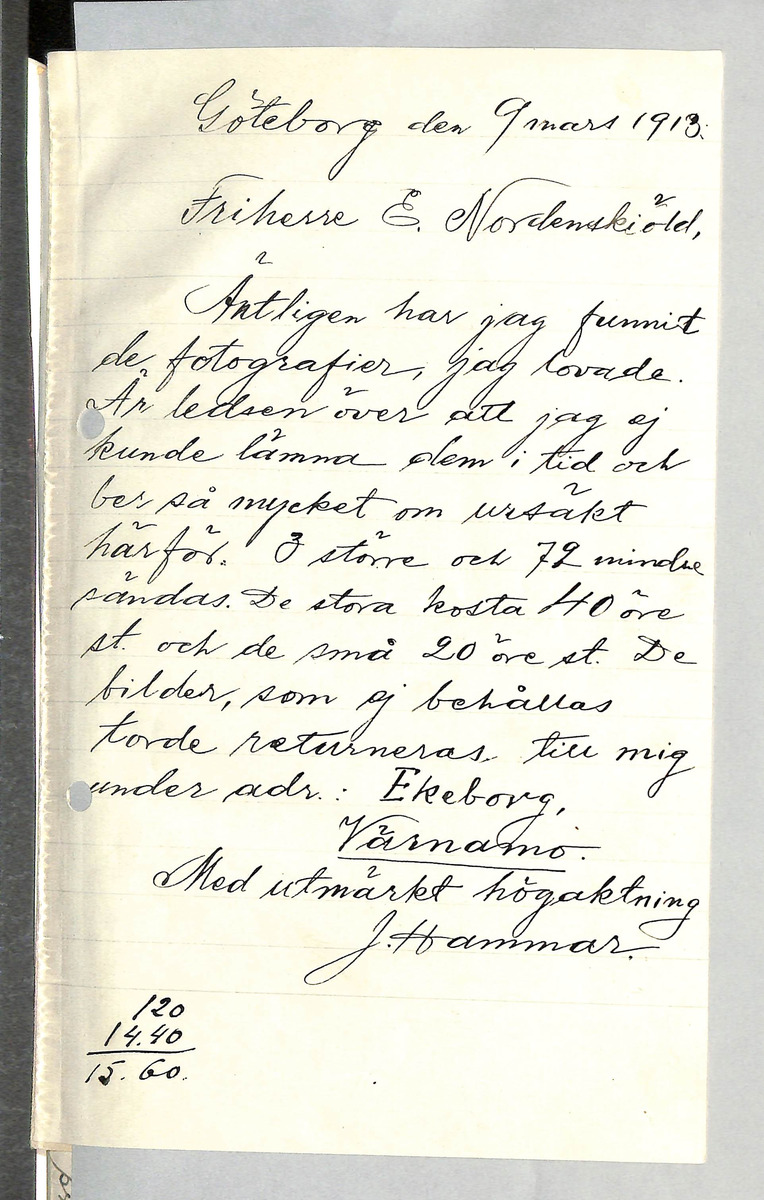 Göteborg den 9 mars 1913.
Friherre E. Nordenskiöld,
Äntligen har jag funnit
de fotografier, jag lovade.
Är ledsen över att jag ej
kunde lämna dem i tid och
ber så mycket om ursäkt
härför. 3 större och 72 mindre
sändas. De stora kosta 40 öre
st. och de små 20 öre st. De
bilder, som ej behållas
torde returneras till mig
under adr.: Ekeborg,
Värnamo.
Med utmärkt högaktning
J. Hammar.
120
14.40
15.60.